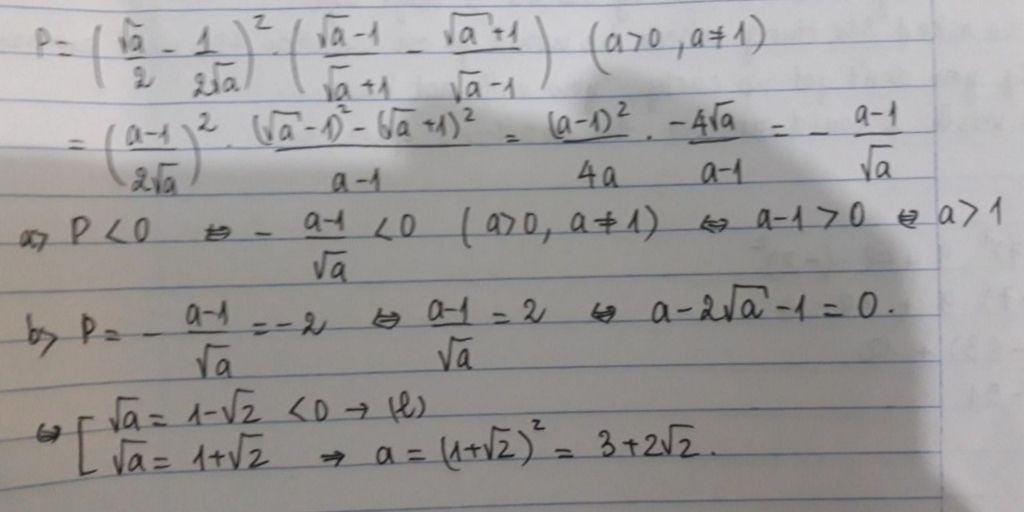 P = (√a/2 - 1/2√a)² · (√a-1/√a+1 - √a+1/√a-1) (a>0, a≠1)
= (a-1/2√a)² · (√a-1)² - (√a+1)²/a-1 = (a-1)²/4a · -4√a/a-1 = - a-1/√a
a> P<0 ⇔ - a-1/√a <0 (a>0, a≠1) ⇔ a-1>0 ⇔ a>1
b> P = - a-1/√a = -2 ⇔ a-1/√a = 2 ⇔ a-2√a-1=0.
⇔ [ √a = 1-√2 <0 → (l)
√a = 1+√2 → a = (1+√2)² = 3+2√2.